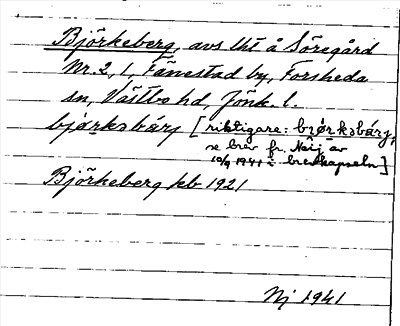 Björkeberg, avs lht å Söregård
Nr. 2, 1, Fänestad by, Forsheda
sn, Västbo hd, Jönk. l.
bjørkəbárj [riktigare: bjørkəbárj,
se brev fr. Neij av
10/9 1941 i brevkapseln]
Björkeberg jkb 1921
Nj 1941